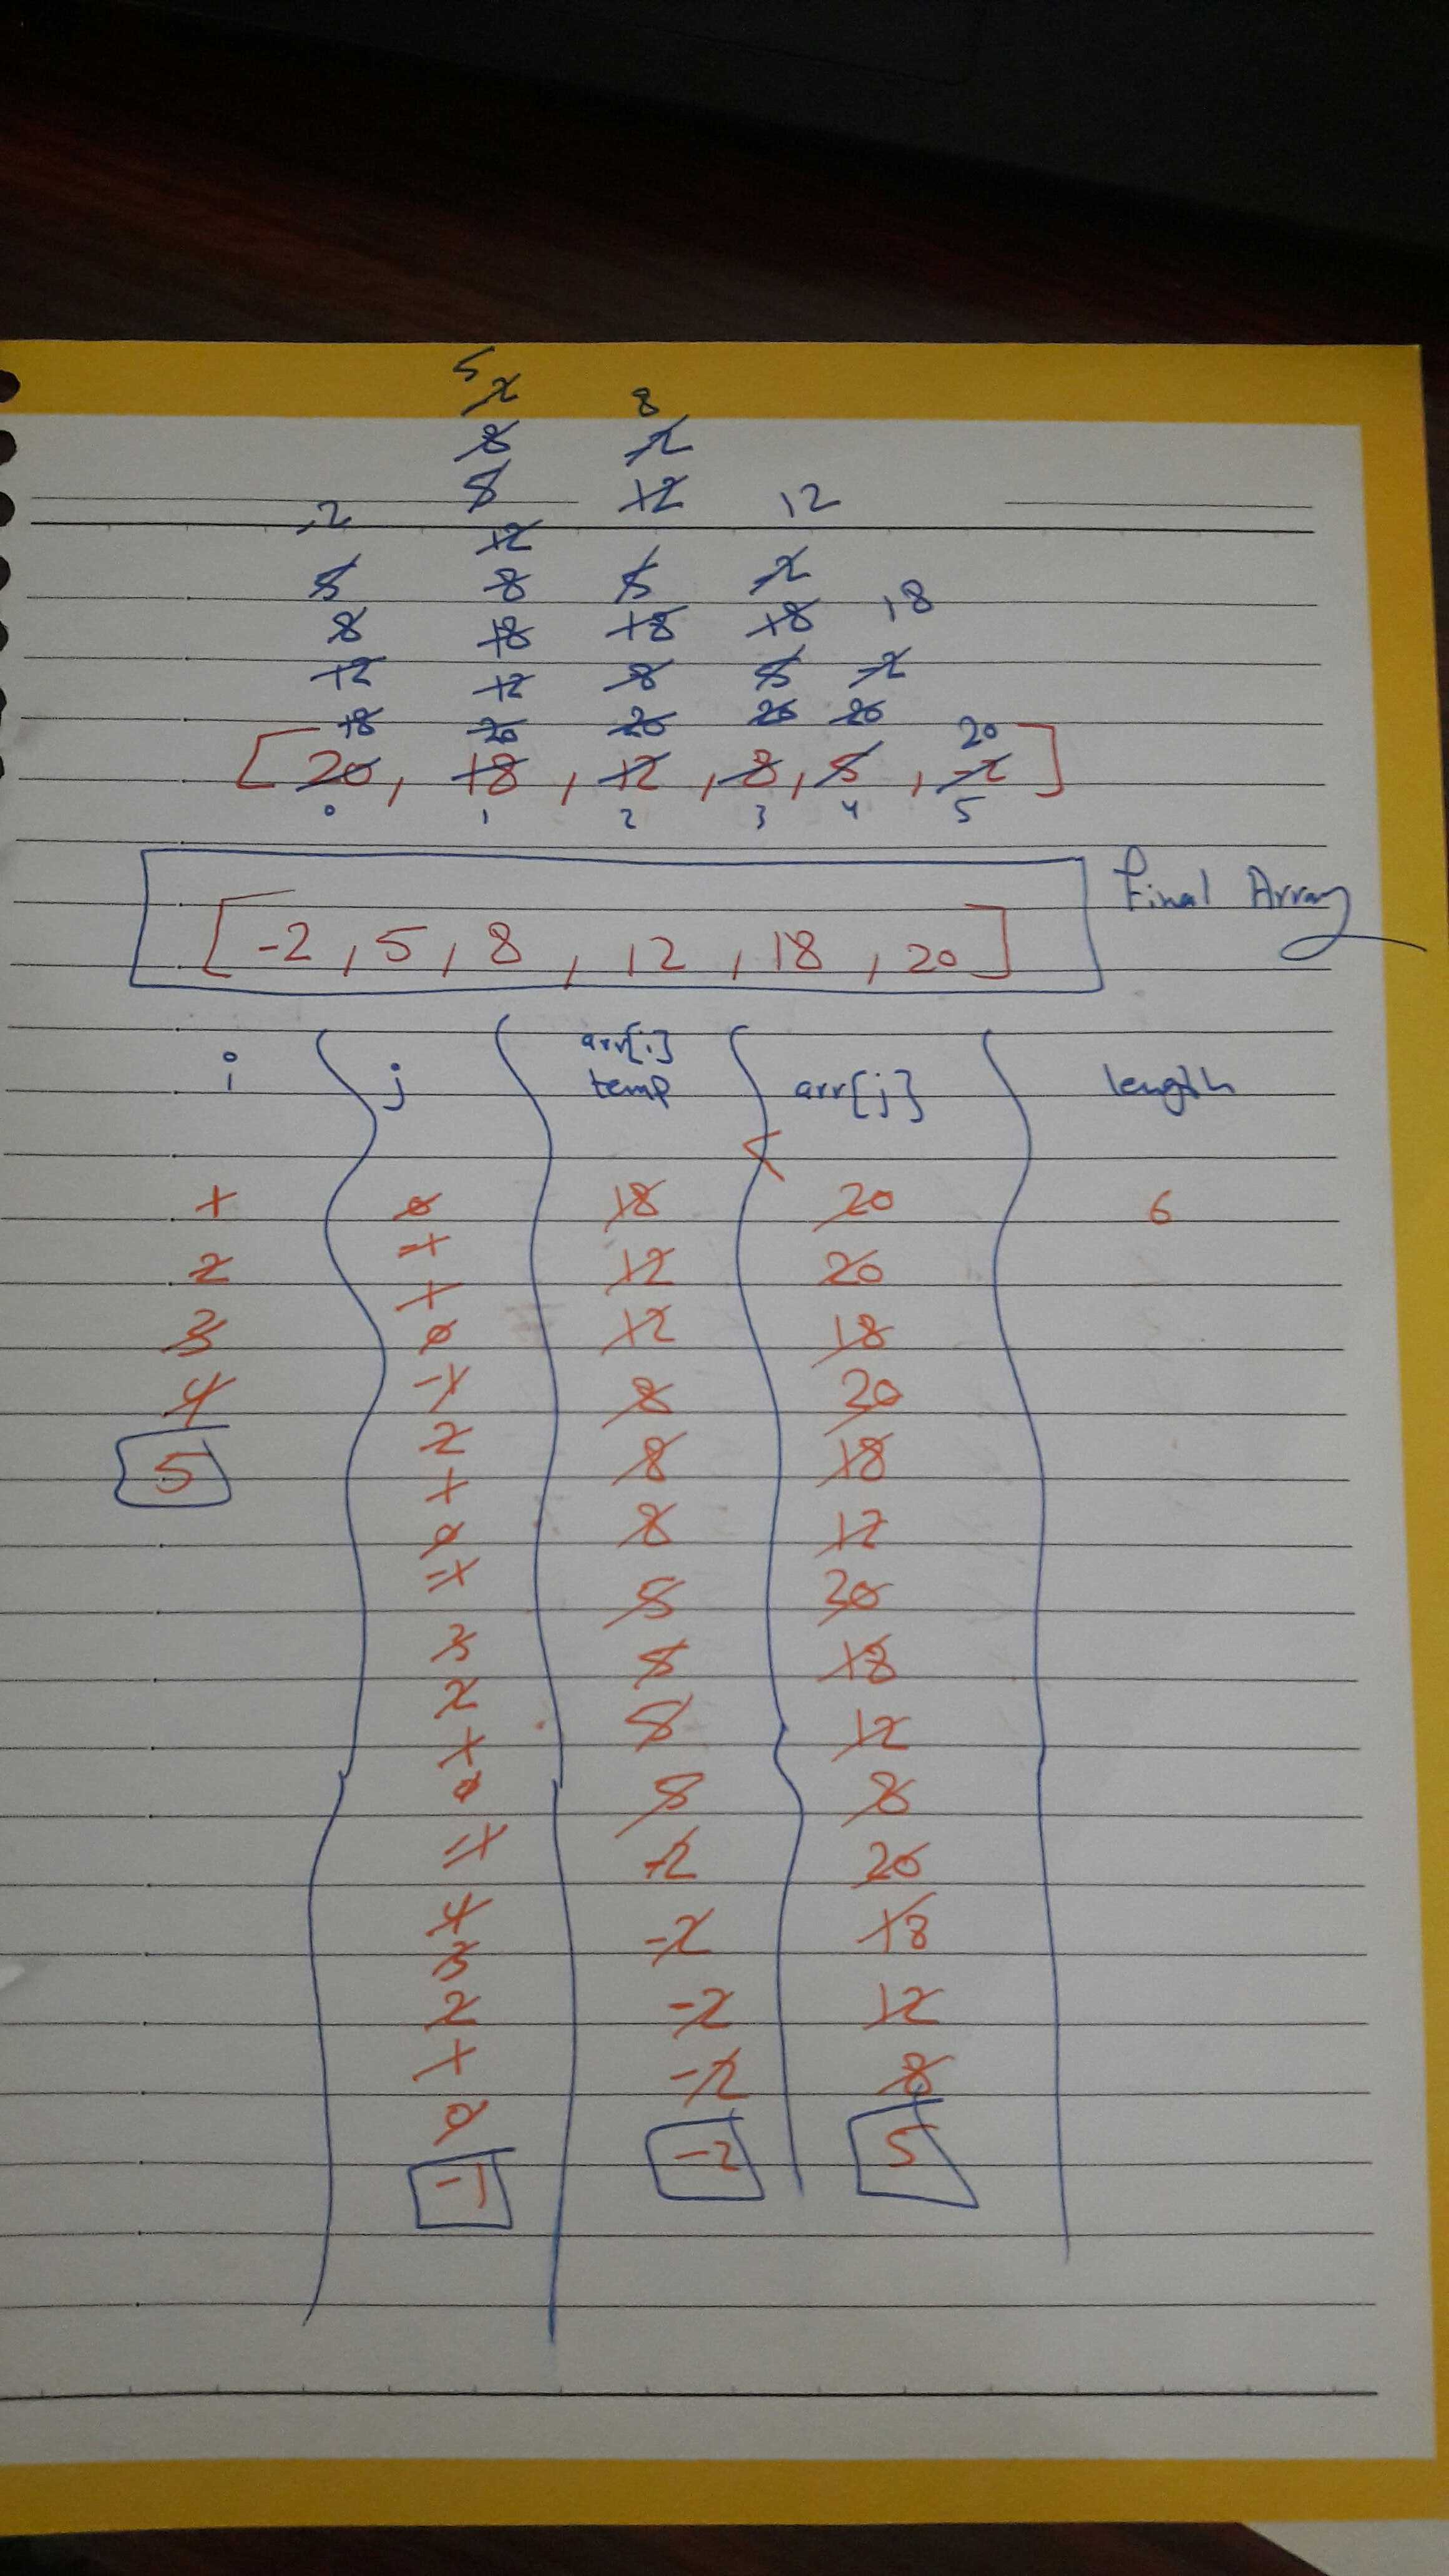 5 2 8
8 2
5 12 12
-2
12
5 8 5 -2
8 18 18 18 18
12 12 8 5 -2
18 20 20 20 20 20
[20, 18, 12, 8, 5, -2]
0 1 2 3 4 5
[-2, 5, 8, 12, 18, 20] Final Array
i j arr[i] temp arr[j] length
<
1 0 18 20 6
-1
2 12 20
1
3 0 12 18
4 -1 8 20
2
5 8 18
1
0 8 12
-1
5 20
3 5 18
2
5 12
1
0 5 8
-1 -2 20
4 -2 18
3
2 -2 12
1 -2 8
0
-1 -2 5